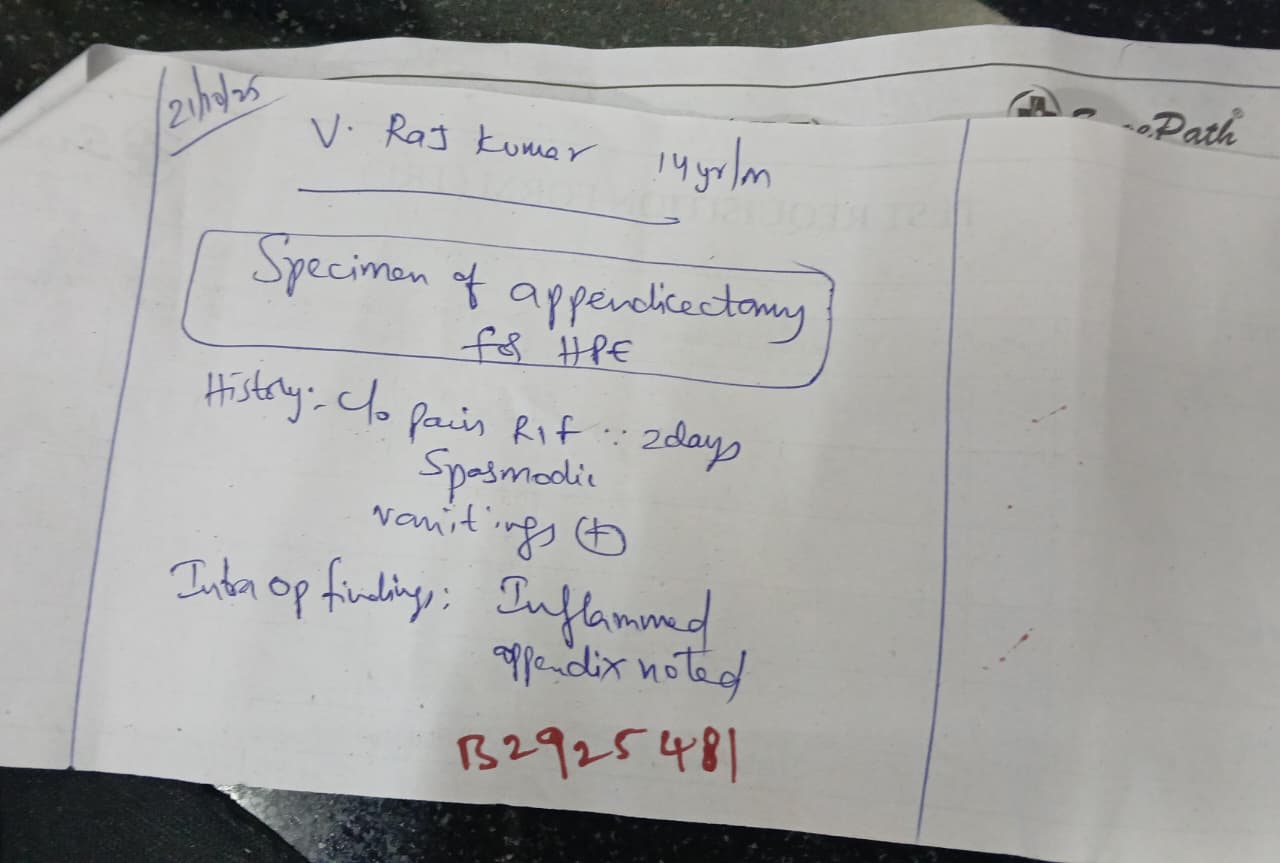 21/10/25
V. Raj Kumar 14yr/m
Path®
Specimen of appendicectomy
for HPE
History:- c/o pain RIF ∵ 2days
Spasmodic
vomitings (+)
Intra op findings: Inflammed
appendix noted
B2925481